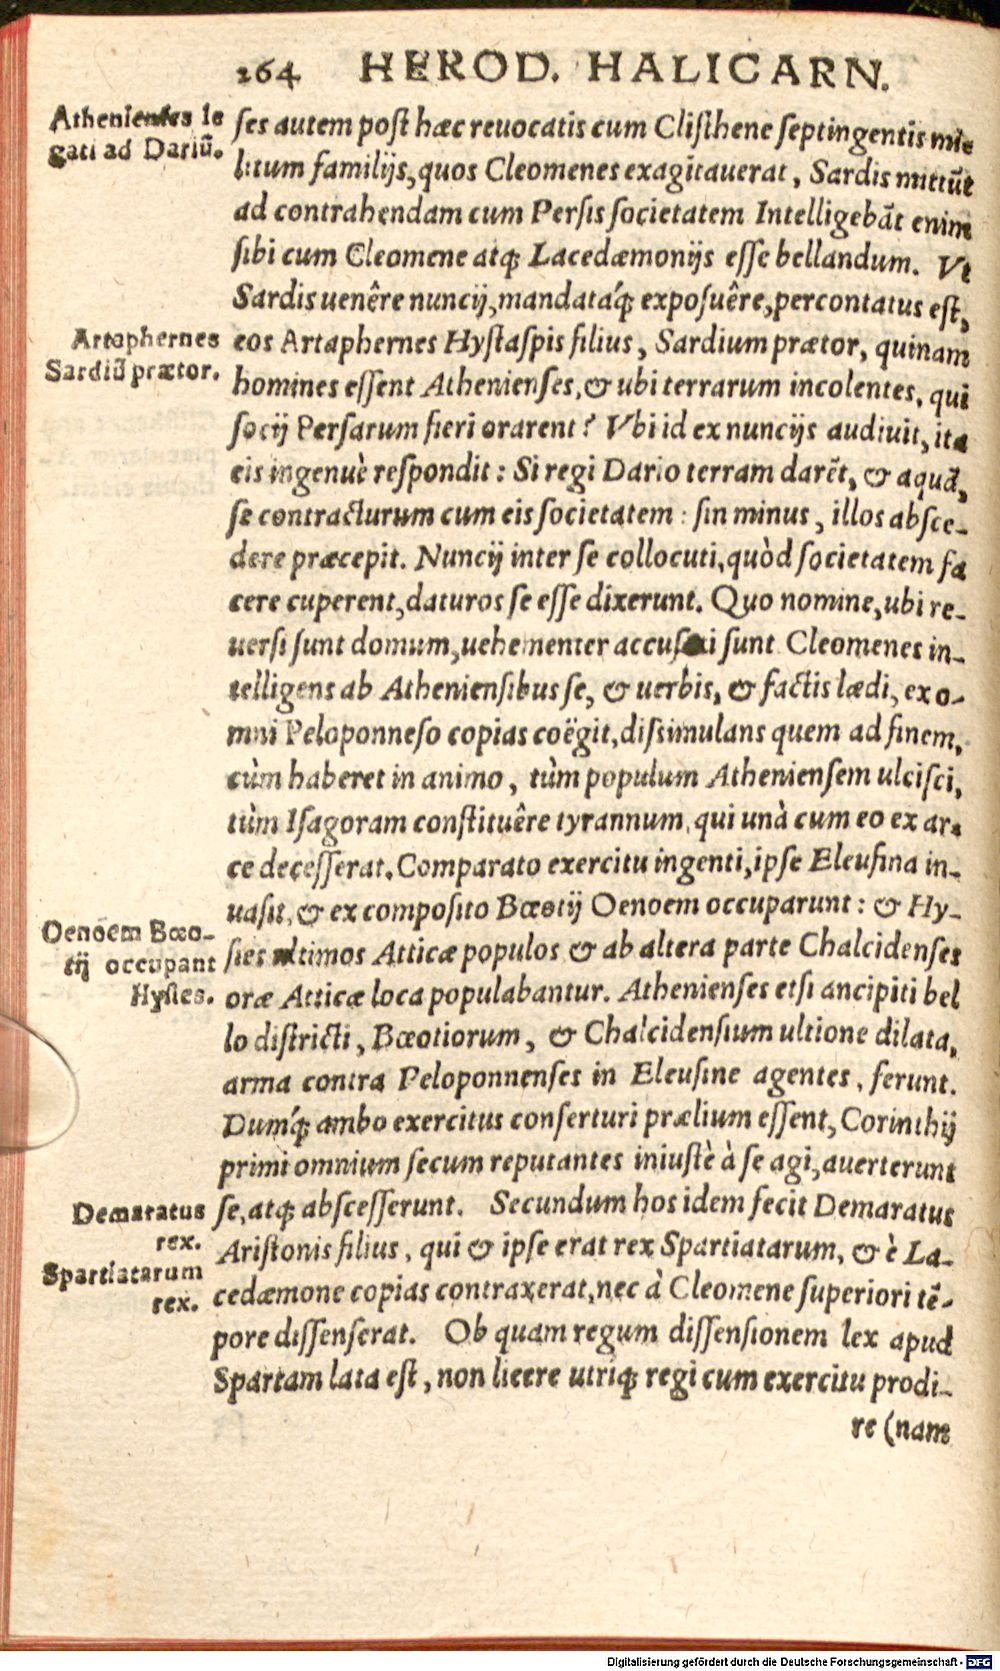 264 HEROD. HALICARN.
Athenienses le
gati ad Dariũ.
ſes autem poſt hæc reuocatis cum Cliſthene ſeptingentis mi-
litum familijs, quos Cleomenes exagitauerat, Sardis mittũt
ad contrahendam cum Perſis ſocietatem Intelligebãt enim
ſibi cum Cleomene atq; Lacedæmonijs eſſe bellandum. Vt
Sardis uenêre nuncij, mandatáq; expoſuêre, percontatus eſt,
Artaphernes
Sardiũ prætor.
eos Artaphernes Hyſtaſpis filius, Sardium prætor, quinam
homines eſſent Athenienſes, & ubi terrarum incolentes, qui
ſocij Perſarum fieri orarent? Vbi id ex nuncijs audiuit, ita
eis ingenuè reſpondit: Si regi Dario terram darẽt, & aquã,
ſe contracturum cum eis ſocietatem: ſin minus, illos abſce-
dere præcepit. Nuncij inter ſe collocuti, quòd ſocietatem fa
cere cuperent, daturos ſe eſſe dixerunt. Quo nomine, ubi re-
uerſi ſunt domum, uehementer accuſati ſunt Cleomenes in-
telligens ab Athenienſibus ſe, & uerbis, & factis lædi, ex o-
mni Peloponneſo copias coëgit, diſsimulans quem ad finem,
cùm haberet in animo, tùm populum Athenienſem ulciſci,
tùm Iſagoram conſtituêre tyrannum, qui unà cum eo ex ar-
ce deceſſerat. Comparato exercitu ingenti, ipſe Eleuſina in-
uaſit, & ex compoſito Bœotij Oenoem occuparunt: & Hy-
Oenoem Bœo-
tij occupant
Hyſies.
ſies ultimos Atticæ populos & ab altera parte Chalcidenſes
oræ Atticæ loca populabantur. Athenienſes etſi ancipiti bel
lo diſtricti, Bœotiorum, & Chalcidenſium ultione dilata,
arma contra Peloponnenſes in Eleuſine agentes, ferunt.
Dumq́; ambo exercitus conſerturi prælium eſſent, Corinthij
primi omnium ſecum reputantes iniuſtè à ſe agi, auerterunt
Demaratus
rex.
Spartiatarum
rex.
ſe, atq; abſceſſerunt. Secundum hos idem fecit Demaratus
Ariſtonis filius, qui & ipſe erat rex Spartiatarum, & è La-
cedæmone copias contraxerat, nec à Cleomene ſuperiori tẽ-
pore diſſenſerat. Ob quam regum diſſenſionem lex apud
Spartam lata eſt, non licere utriq; regi cum exercitu prodi-
re (nam
Digitalisierung gefördert durch die Deutsche Forschungsgemeinschaft - DFG